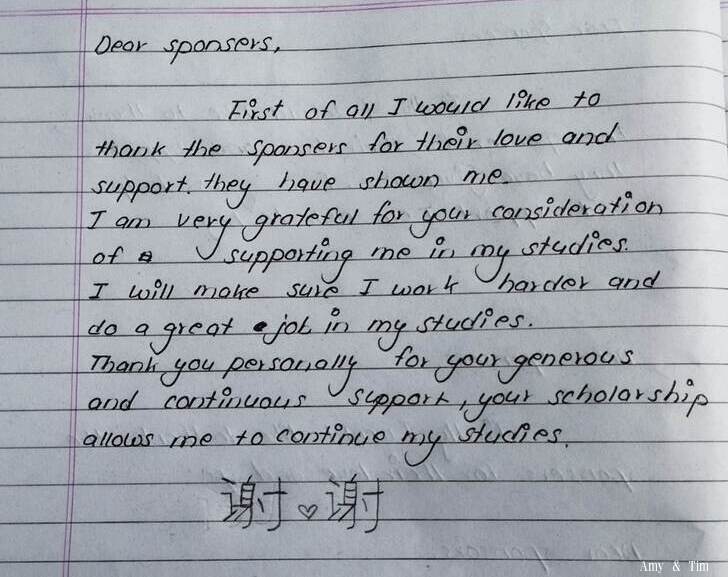 Dear sponsers,
First of all I would like to
thank the sponsers for their love and
support. they have shown me.
I am very grateful for your consideration
of a supporting me in my studies.
I will make sure I work harder and
do a great job in my studies.
Thank you personally for your generous
and continuous support, your scholarship
allows me to continue my studies.
谢♡谢
Amy & Tim